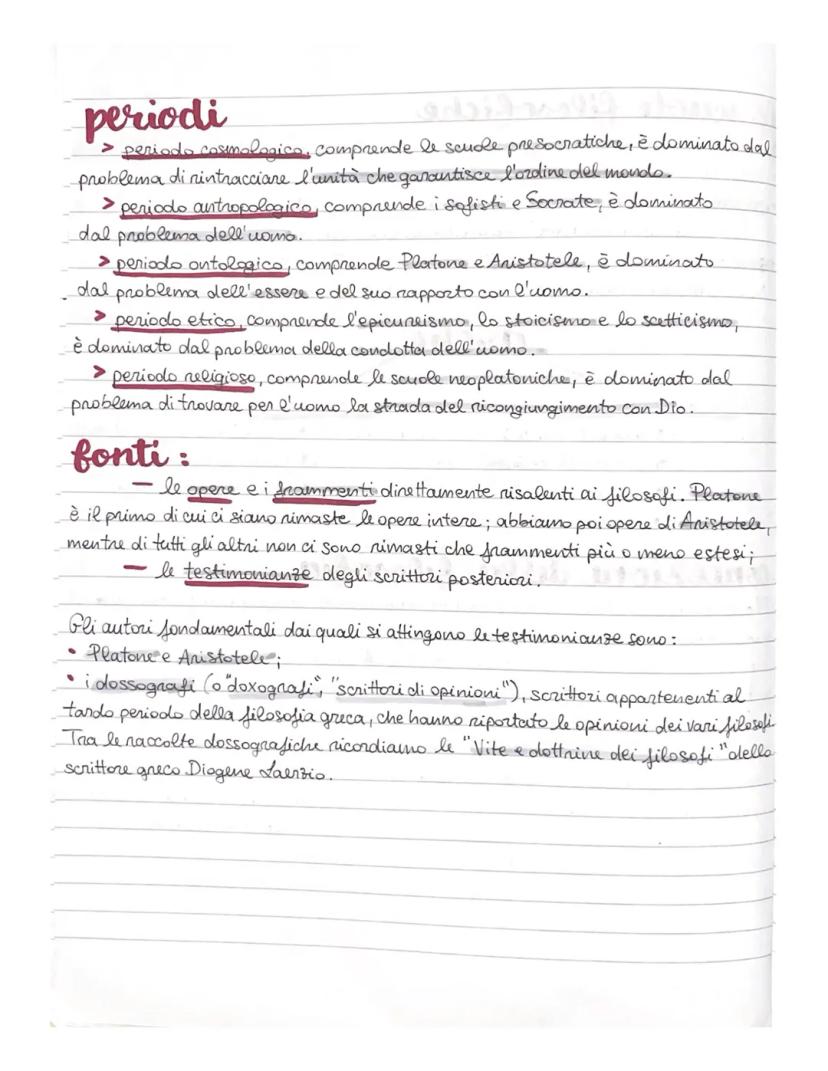 periodi
> periodo cosmologico, comprende le scuole presocratiche, è dominato dal
problema di rintracciare l'unità che garantisce l'ordine del mondo.
> periodo antropologico, comprende i sofisti e Socrate, è dominato
dal problema dell'uomo.
> periodo ontologico, comprende Platone e Aristotele, è dominato
dal problema dell'essere e del suo rapporto con l'uomo.
> periodo etico, comprende l'epicureismo, lo stoicismo e lo scetticismo,
è dominato dal problema della condotta dell'uomo.
> periodo religioso, comprende le scuole neoplatoniche, è dominato dal
problema di trovare per l'uomo la strada del ricongiungimento con Dio.
fonti:
— le opere e i frammenti direttamente risalenti ai filosofi. Platone
è il primo di cui ci siano rimaste le opere intere; abbiamo poi opere di Aristotele,
mentre di tutti gli altri non ci sono rimasti che frammenti più o meno estesi;
— le testimonianze degli scrittori posteriori.
Gli autori fondamentali dai quali si attingono le testimonianze sono:
• Platone e Aristotele;
• i dossografi (o "doxografi", "scrittori di opinioni"), scrittori appartenenti al
tardo periodo della filosofia greca, che hanno riportato le opinioni dei vari filosofi.
Tra le raccolte dossografiche ricordiamo le "Vite e dottrine dei filosofi" dello
scrittore greco Diogene Laerzio.